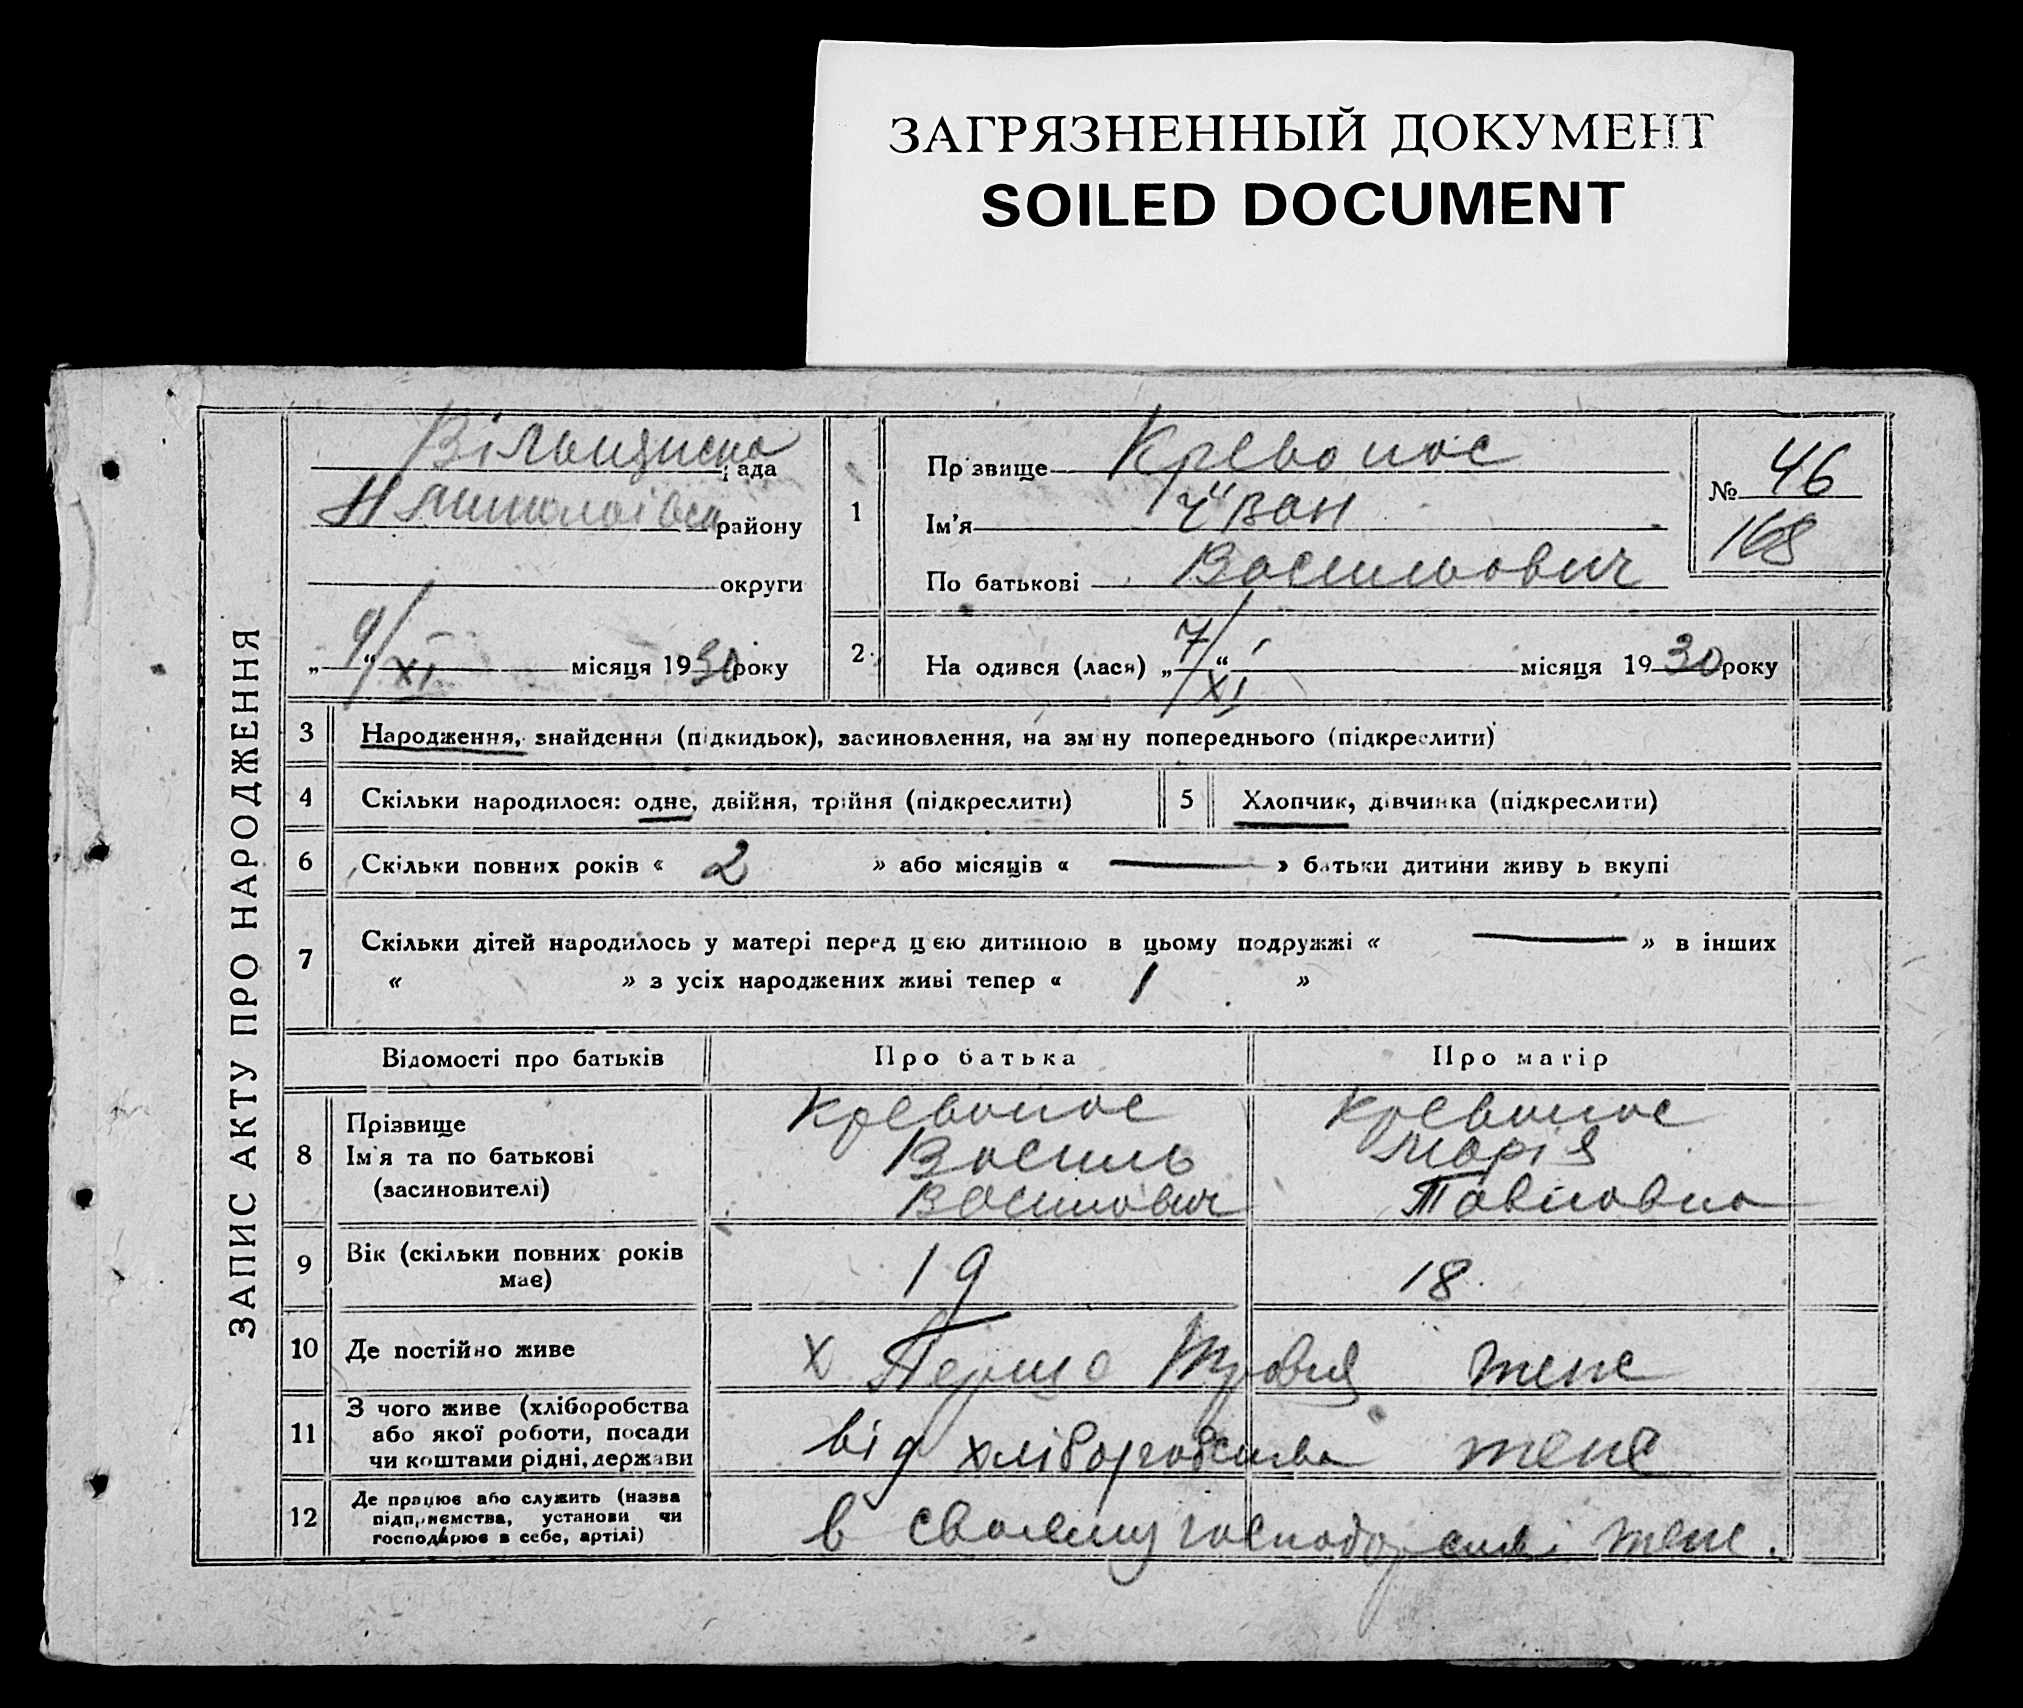 ЗАГРЯЗНЕННЫЙ ДОКУМЕНТ
SOILED DOCUMENT
ЗАПИС АКТУ ПРО НАРОДЖЕННЯ
рада
району
округи
„ 9/XI “ місяця 1930 року
1
Прізвище Кревонос
Ім’я Іван
По батькові Васильович
№ 46
168
2
На одився (лася) „ 7/XI “ місяця 1930 року
3 Народження, знайдення (підкидьок), засиновлення, на зміну попереднього (підкреслити)
4 Скільки народилося: одне, двійня, трійня (підкреслити)
5 Хлопчик, дівчинка (підкреслити)
6 Скільки повних років « 2 » або місяців « — » батьки дитини живу ь вкупі
7 Скільки дітей народилось у матері перед цією дитиною в цьому подружжі « — » в інших
« » з усіх народжених живі тепер « 1 »
Відомості про батьків Про батька Про матір
8 Прізвище Кревонос Кревонос
Ім'я та по батькові Василь Марія
(засиновителі) Василович Павловна
9 Вік (скільки повних років має) 19 18
10 Де постійно живе х Перша теже
11 З чого живе (хліборобства
або якої роботи, посади
чи коштами рідні, держави від хліборобства теже
12 Де працює або служить (назва
підприємства, установи чи
господарює в себе, артілі) в своєму господарстві теже.